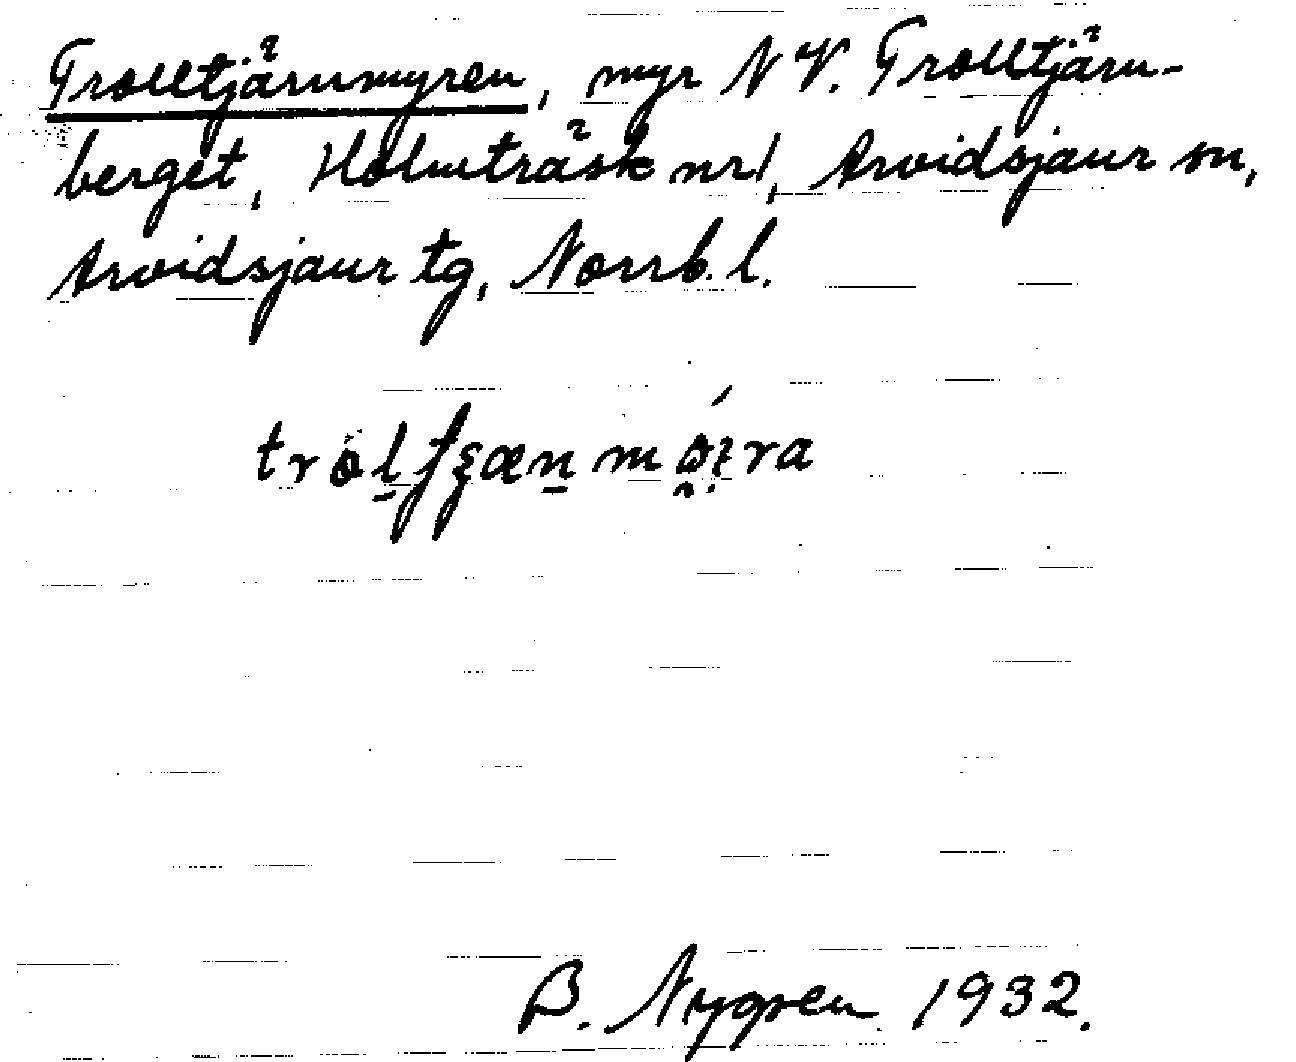 Trolltjärnmyren, myr N V. Trolltjärn-
berget, Holmträsk nr 1, Arvidsjaur sn,
Arvidsjaur tg, Norrb. l.
B. Nygren 1932.